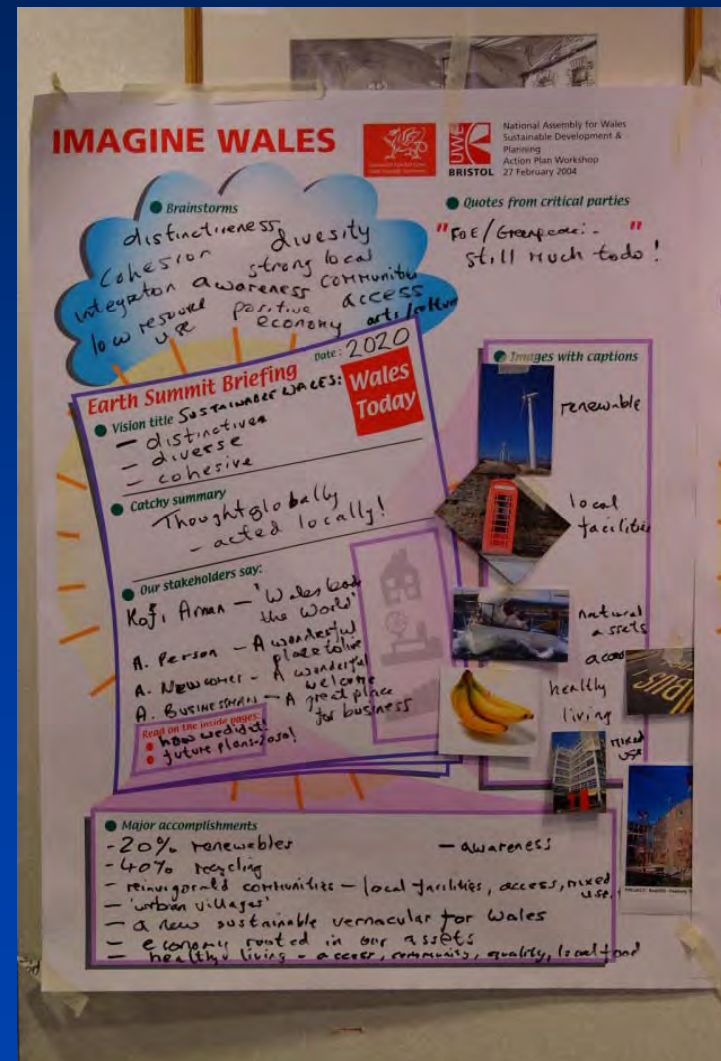 IMAGINE WALES
UWE
BRISTOL
National Assembly for Wales
Sustainable Development &
Planning
Action Plan Workshop
27 February 2004
Brainstorms
distinctiveness
divesity
cohesion
strong local
integration awareness communities
low resource positive access
use economy arts/culture
Quotes from critical parties
"FOE/Greenpeace:- "
still much todo!
Earth Summit Briefing
Date: 2020
Vision title SUSTAINABLE WALES:
- distinctive
- diverse
- cohesive
Wales
Today
Catchy summary
Thought globally
- acted locally!
Our stakeholders say:
Kofi Annan - 'Wales
the World'
A. Person - A wonderful
place to live
A. Newcomer - A wonderful
welcome
A. Businessman - A great place
for business
Read on the inside pages:
how we did it!
future plans-2050!
Images with captions
renewable
local
facilities
natural
assets
healthy
living
BUS
mixed
use
Major accomplishments
- 20% renewables
- awareness
- 40% recycling
- reinvigorated communities - local facilities, access, mixed
use,
- 'urban villages'
- a new sustainable vernacular for Wales
- economy rooted in our assets
- healthy living - access, community, quality, local food